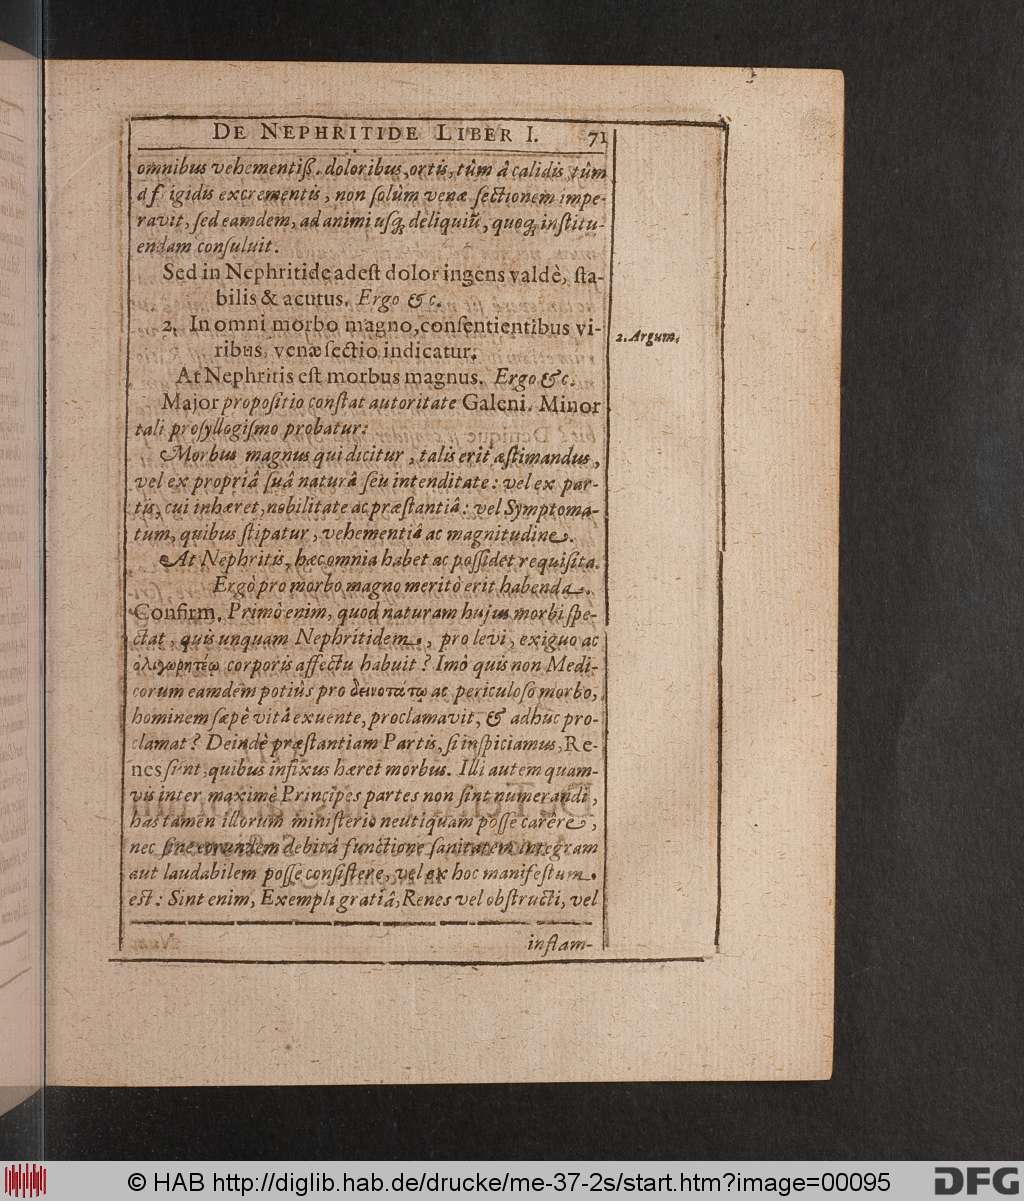 DE NEPHRITIDE LIBER I. 71
omnibus vehementiß. doloribus, ortis, tûm â calidis, tûm
â frigidis excrementis, non ſolùm venæ ſectionem impe-
ravit, ſed eamdem, ad animi uſq; deliquiũ, quoq; inſtitu-
endam conſuluit.
Sed in Nephritide adeſt dolor ingens valdè, ſta-
bilis & acutus. Ergo &c.
2. In omni morbo magno, conſentientibus vi-
ribus, venæ ſectio indicatur.
2. Argum.
At Nephritis eſt morbus magnus. Ergo &c.
Major propoſitio conſtat autoritate Galeni. Minor
tali proſyllogiſmo probatur:
Morbus magnus qui dicitur, talis erit æſtimandus,
vel ex propriâ ſuâ naturâ ſeu intenditate: vel ex par-
tis, cui inhæret, nobilitate ac præſtantiâ: vel Symptoma-
tum, quibus ſtipatur, vehementiâ ac magnitudine.
At Nephritis, hæc omnia habet ac poſſidet requiſita.
Ergò pro morbo magno meritò erit habenda.
Confirm. Primò enim, quod naturam hujus morbi ſpe-
ctat, quis unquam Nephritidem, pro levi, exiguo ac
ὀλιγωρητέῳ corporis affectu habuit? Imô quis non Medi-
corum eamdem potiùs pro δεινοτάτῳ ac periculoſo morbo,
hominem ſæpè vitâ exuente, proclamavit, & adhuc pro-
clamat? Deindè præſtantiam Partis, ſi inſpiciamus, Re-
nes ſunt, quibus infixus hæret morbus. Illi autem quam-
vis inter maximè Principes partes non ſint numerandi,
has tamen illorum miniſterio neutiquam poſſe carêre,
nec ſine eorundem debitâ functione ſanitatem integram
aut laudabilem poſſe conſiſtere, vel ex hoc manifeſtum
eſt: Sint enim, Exempli gratiâ, Renes vel obſtructi, vel
inflam-
© HAB http://diglib.hab.de/drucke/me-37-2s/start.htm?image=00095
DFG